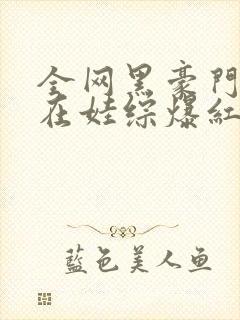 全网黑豪門
在娃综爆紅
藍色美人鱼